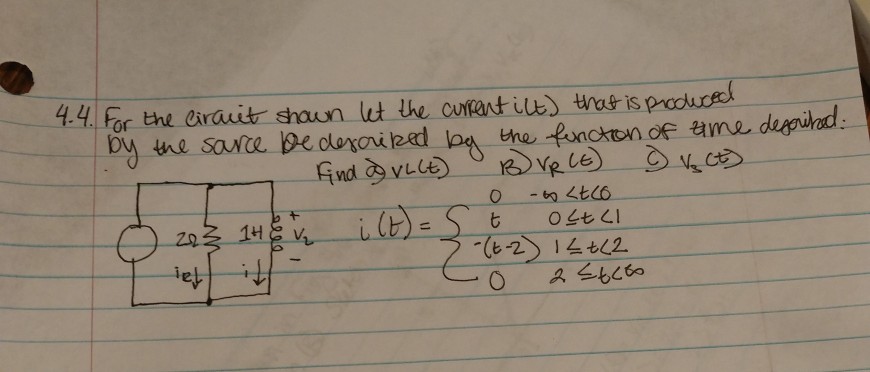 4.4. For the circuit shown let the current i(t) that is produced
by the source be described by the function of time described:
Find a) VL(t) B) VR(t) C) Vs(t)
0 -∞ <t<0
i(t) = { t 0≤t<1
-(t-2) 1≤t<2
0 2≤t<∞
2Ω 1H + VL -
iR↓ i↓